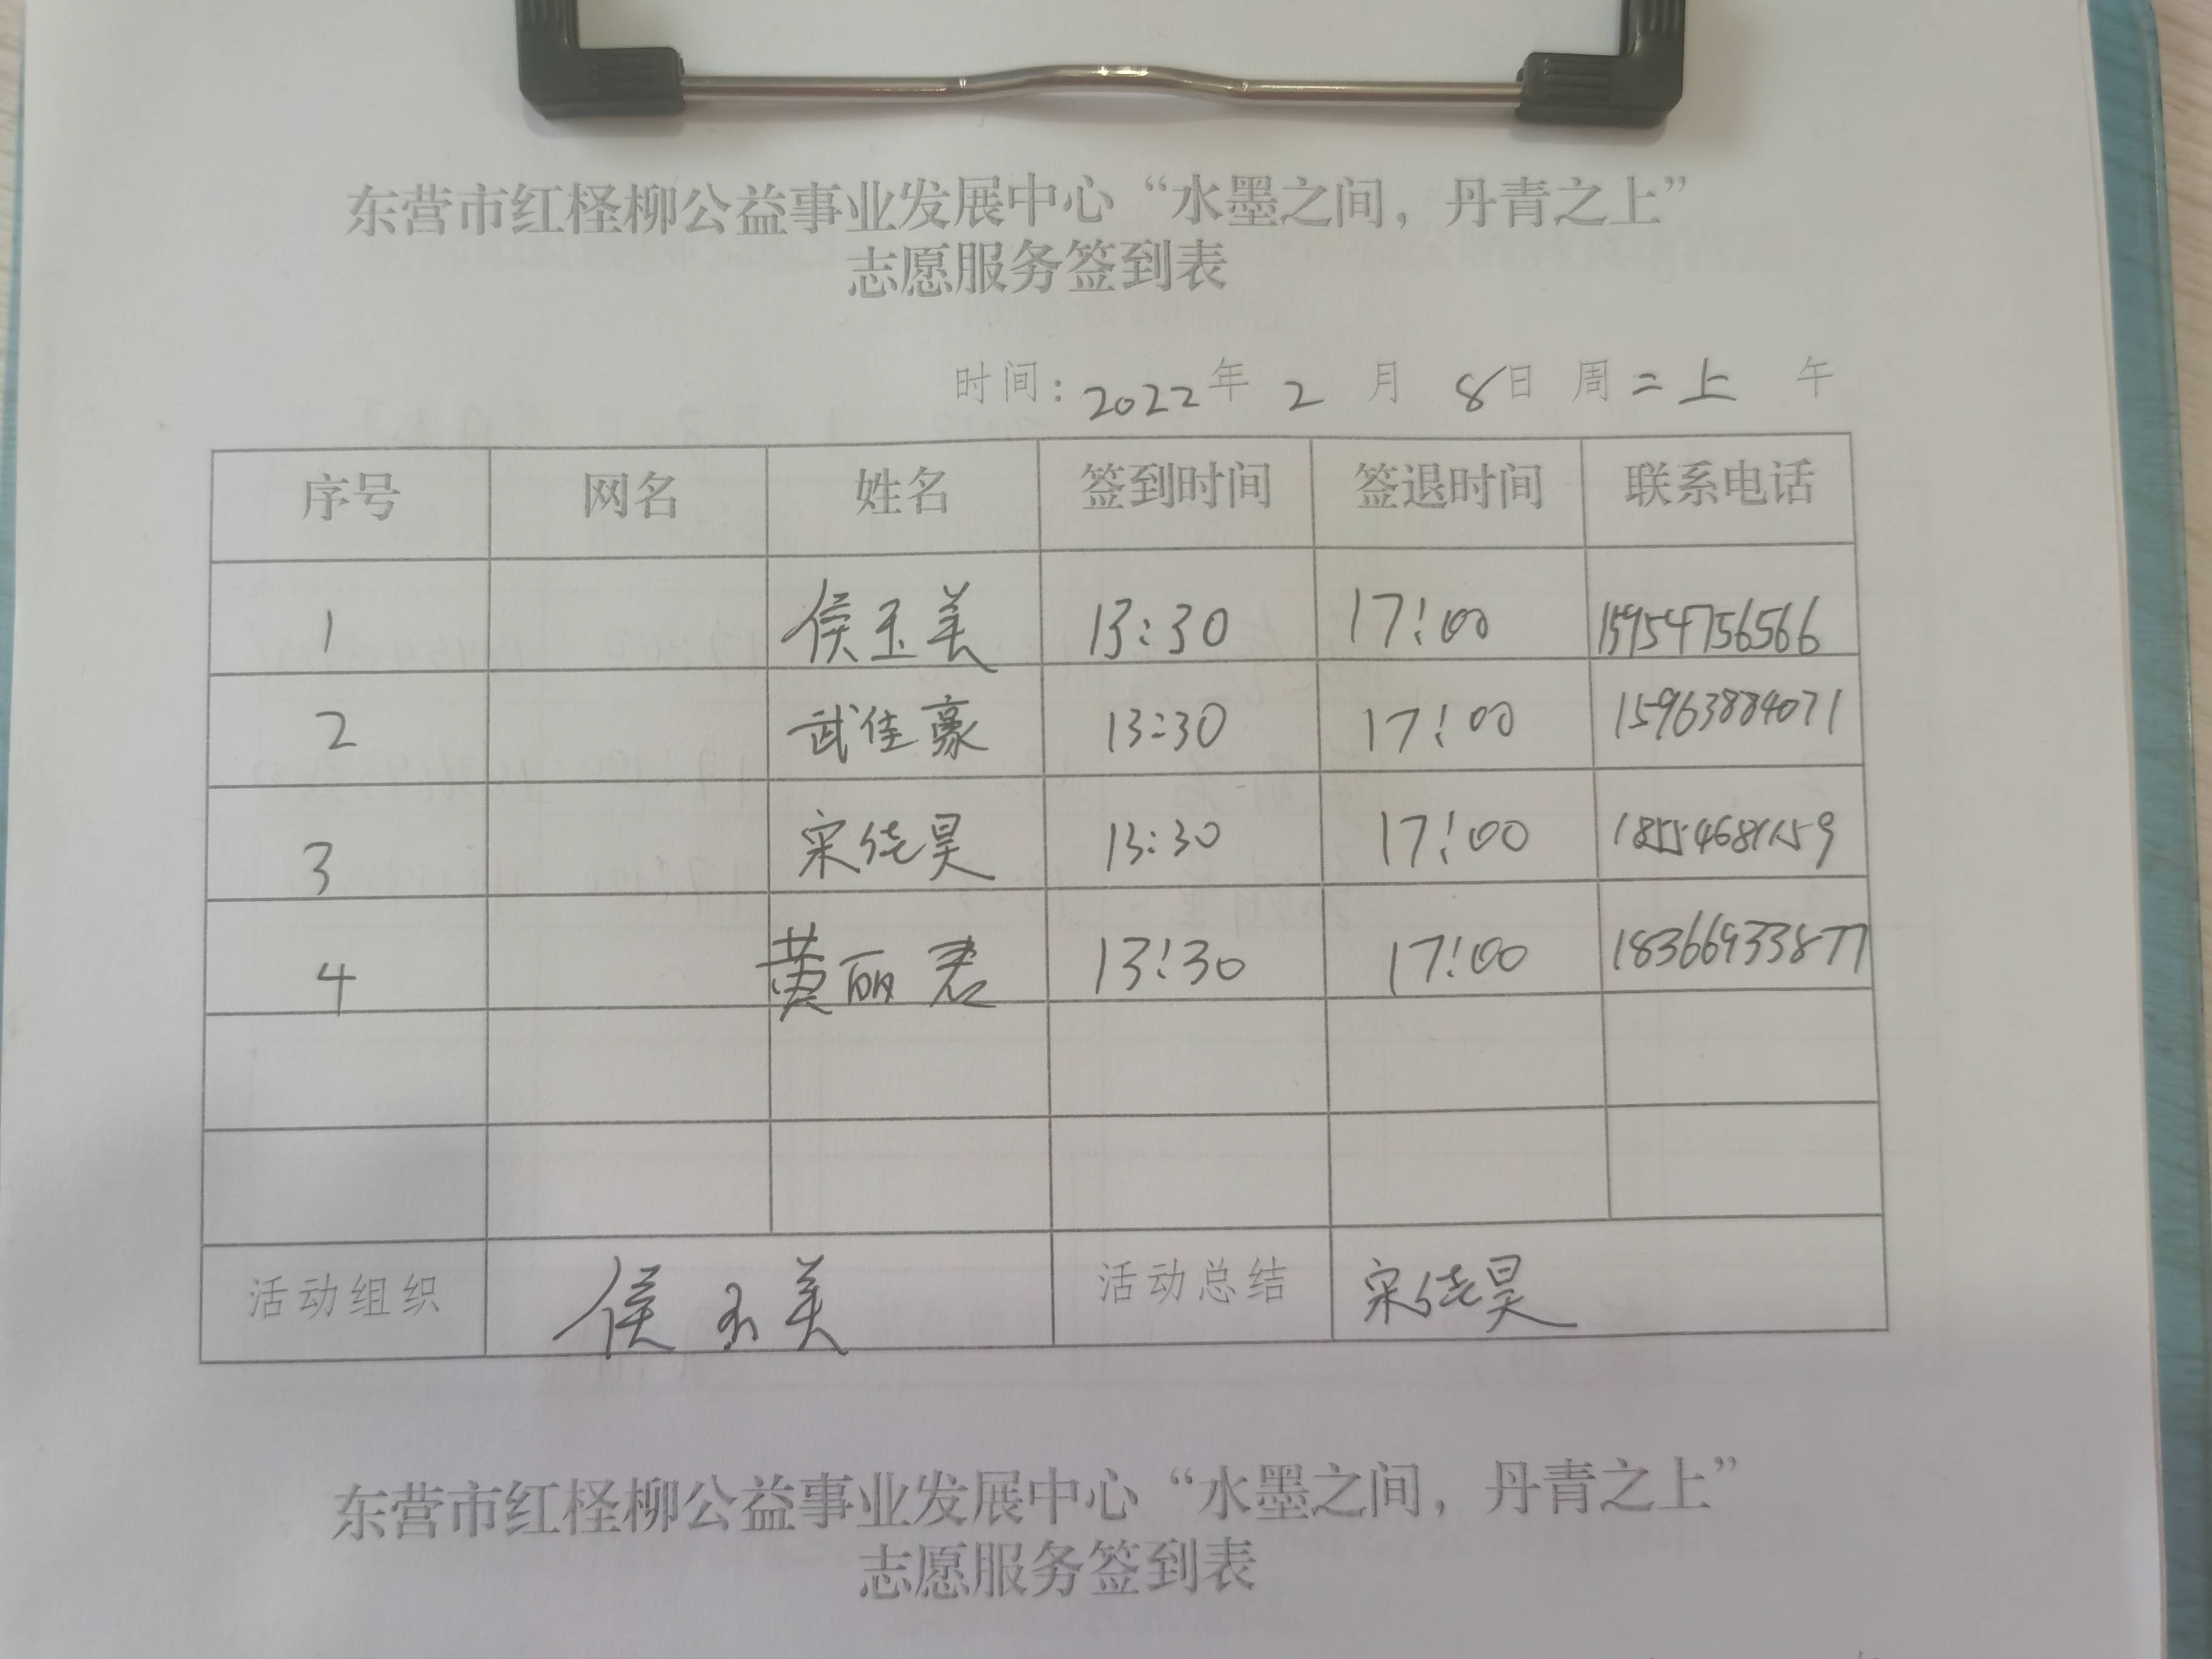 东营市红柽柳公益事业发展中心“水墨之间，丹青之上”
志愿服务签到表
时间：2022年 2 月 8日 周二上 午
序号 网名 姓名 签到时间 签退时间 联系电话
1 侯玉美 13:30 17:00 15954756566
2 武佳豪 13:30 17:00 15963884071
3 宋佬昊 13:30 17:00 18554681159
4 黄丽君 13:30 17:00 18366933877
活动组织 侯玉美 活动总结 宋佬昊
东营市红柽柳公益事业发展中心“水墨之间，丹青之上”
志愿服务签到表